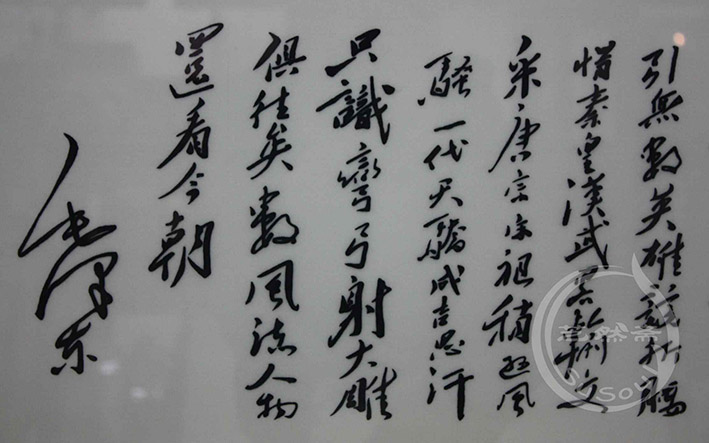 引無數英雄競折腰
惜秦皇漢武略輸文
采唐宗宋祖稍遜風
騷一代天驕成吉思汗
只識彎弓射大雕
俱往矣數風流人物
還看今朝
毛澤東